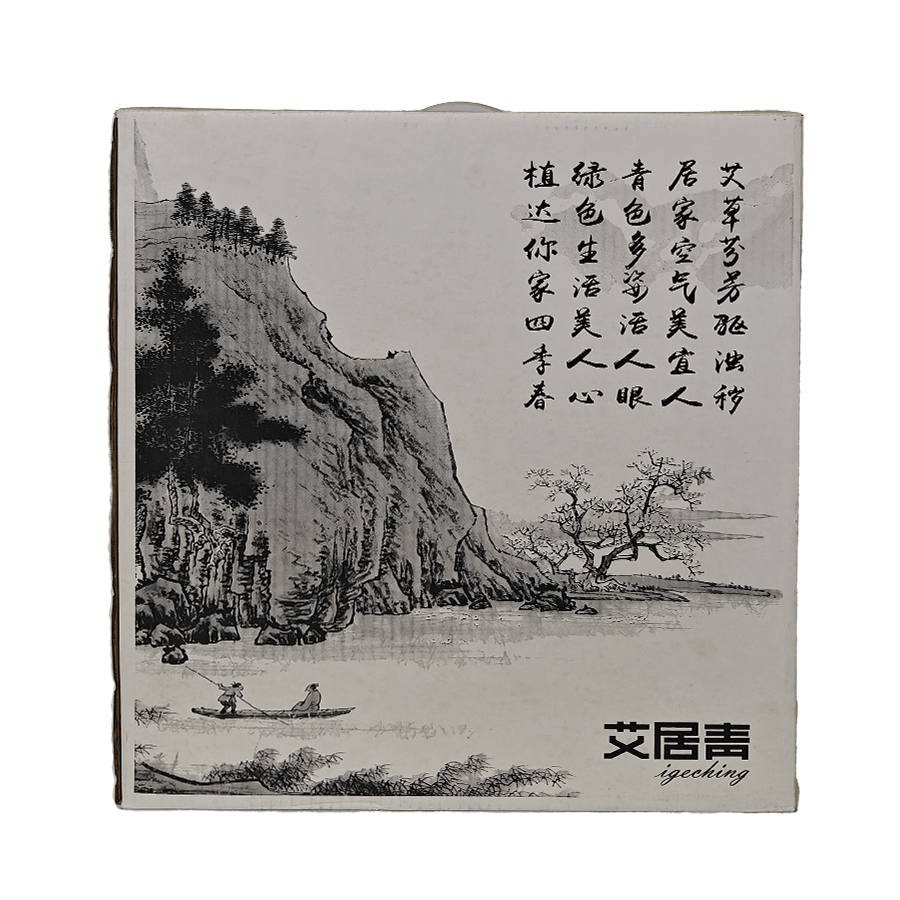 艾草芬芳驱浊秽
居家空气美宜人
青色多姿活人眼
绿色生活美人心
植达你家四季春
艾居青
igeching